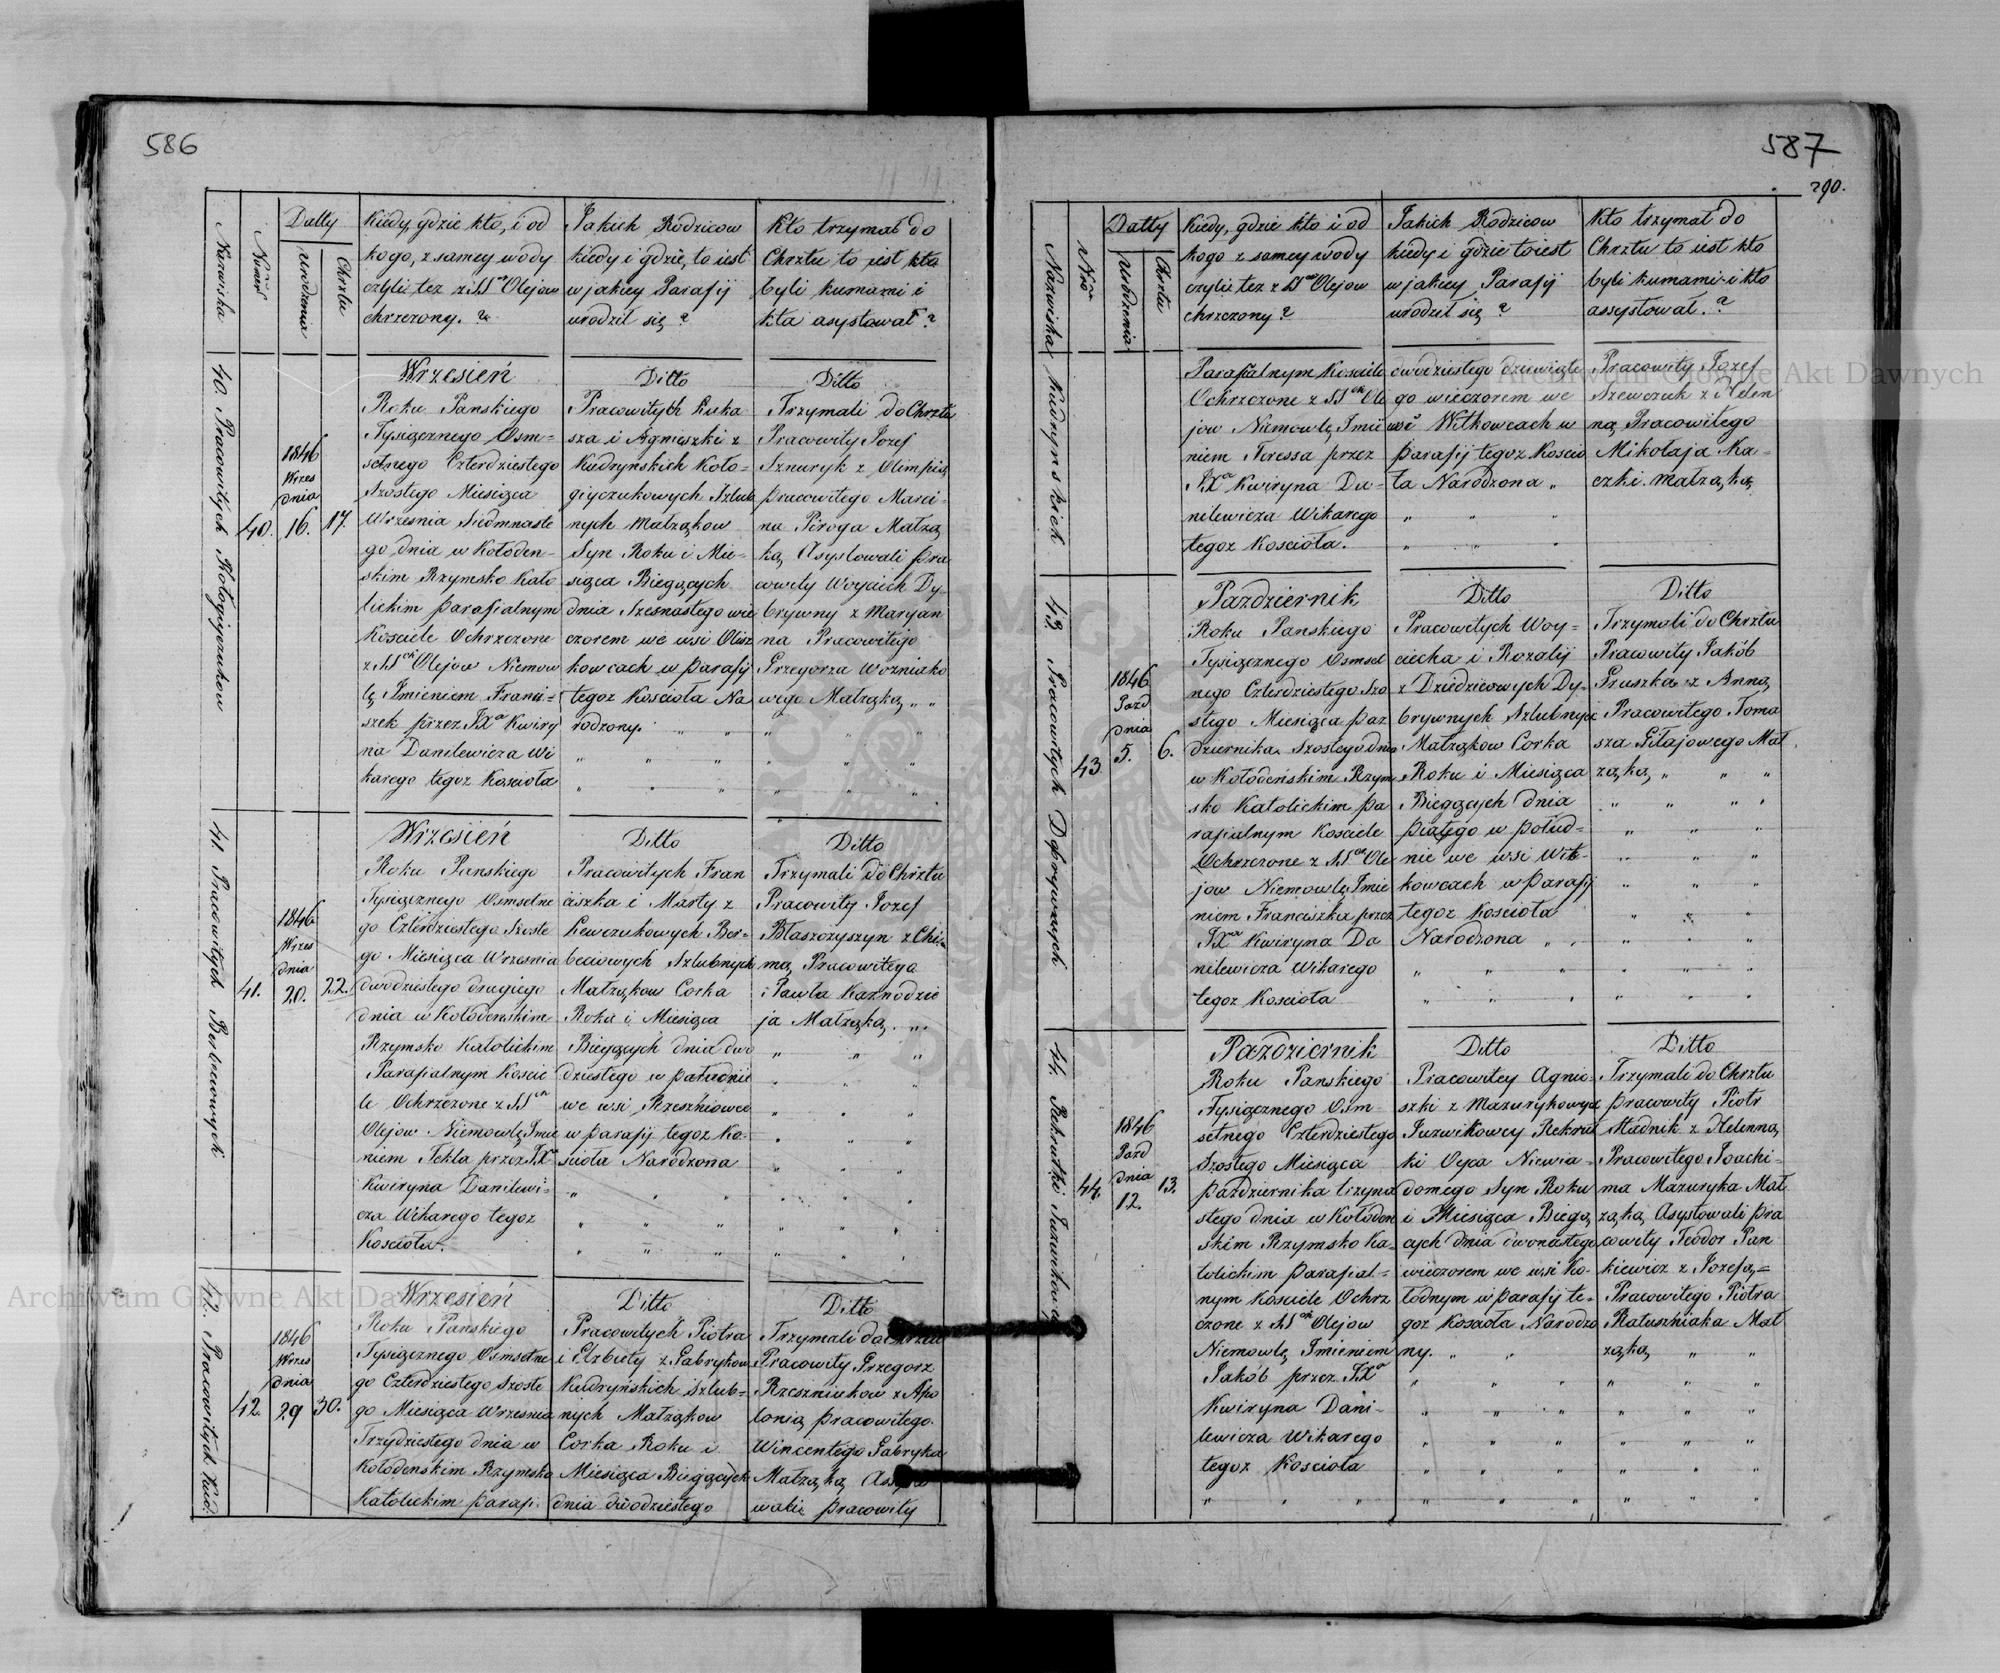 586
Nazwiska
Numer
Datty
Urodzenia
Chrztu
Kiedy, gdzie kto, i od
kogo, z samey wody
czyli tez z SSch Olejow
chrzczony. ?
Jakich Rodzicow
kiedy i gdzie, to iest
w jakiey Parafij
urodził się ?
Kto trzymał do
Chrztu to iest kto
byli kumami i
kto asystował ?
40. Pracowitych Kołogiyczukow
40.
1846
Wrzes
dnia
16.
17.
Wrzesień
Roku Panskiego
Tysiącznego Osm=
setnego Czterdziestego
Szostego Miesiąca
Wrzesnia Siedmnaste
go dnia w Kołoden=
skim Rzymsko Kato
lickim parafialnym
Kosciele Ochrzczone
z SSch Olejow Niemow
lę Imieniem Franci=
szek przez JXa Kwiry
na Danilewicza Wi
karego tegoz Koscioła
Ditto
Pracowitych Łuka
sza i Agnieszki z
Kudryńskich Koło=
giyczukowych Szlub
nych Małząkow
Syn Roku i Mie=
siąca Biegących
dnia Szesnastego wie
czorem we wsi Olisz
kowcach w parafij
tegoz Kosciola Na
rodzony.
Ditto
Trzymali do Chrztu
Pracowity Jozef
Sznuryk z Olimpią
pracowitego Marci=
na Piroga Małzą
ką, Asystowali pra
cowity Woyciech Dy=
brywny z Maryan
na Pracowitego
Grzegorza Wozniako
wego Małząką " "
41. Pracowitych Berbeciowych
41.
1846
Wrzes
dnia
20.
22.
Wrzesień
Roku Panskiego
Tysiącznego Osmsetne
go Czterdziestego Szoste
go Miesiąca Wrzesnia
dwodziestego drugiego
dnia w Kołodenskim
Rzymsko Katolickim
Parafialnym Koscie
le Ochrzczone z SSch
Olejow Niemowlę Imie
niem Tekla przez JXa
Kwiryna Danilewi=
cza Wikarego tegoz
Kosciola.
Ditto
Pracowitych Fran
ciszka i Marty z
Lewczukowych Ber=
beciowych Szlubnych
Małząkow Corka
Roku i Miesiąca
Biegących dnia dwo
dziestego w południe
we wsi Rzeszniowce
w parafij tegoz Ko=
sciola Narodzona
Ditto
Trzymali do Chrztu
Pracowity Jozef
Błaszczyszyn z Chi=
mą Pracowitego
Pawła Kaznodzie
ja Małząką. ".
42. Pracowitych Kud.
42.
1846
Wrzes
dnia
29
30.
Wrzesień
Roku Pańskiego
Tysiącznego Osimsetne
go Czterdziestego Szoste
go Miesiąca Wrzesnia
Trzydziestego dnia w
Kołodenskim Rzymsko
Katolickim parafi.
Ditto
Pracowitych Piotra
i Elzbiety z Gabrykow
Kudryńskich Szlub=
nych Małząkow
Corka Roku i
Miesiąca Biegących
dnia dwodziestego
Ditto
Trzymali do Chrztu
Pracowity Grzegorz
Rzeszniukow z Apo
lonią pracowitego
Wincentego Gabryka
Małząką
wali pracowity
587
290.
Nazwiska
Nro
Datty
Urodzenia
Chrztu
Kiedy, gdzie kto i od
kogo z samey wody
czyli tez z SSch Olejow
chrzczony ?
Jakich Rodzicow
kiedy i gdzie to iest
w jakiey Parafij
urodził się ?
Kto trzymał do
Chrztu to iest kto
byli kumami i kto
assystował. ?
Kudrynskich
Parafialnym Kosciele
Ochrzczone z SSch Ole
jow Niemowlę Imie
niem Teressa przez
JXa Kwiryna Da=
nilewicza Wikarego
tegoz Kosciola.
dwodziestego dziewiąte
go wieczorem we
wsi Witkowcach w
parafij tegoz Koscio
ła Narodzona "
Pracowity Jozef
Szewczuk z Helen
ną Pracowitego
Mikołaja Ka=
czki. małząką
43. Pracowitych Dobrywnych
43
1846
Pazd
dnia
5.
6.
Pazdziernik
Roku Panskiego
Tysiącznego Osmset
nego Czterdziestego Szo
stego Miesiąca paz
dziernika Szostego dnia
w Kołodeńskim Rzym
sko Katolickim pa
rafialnym Kosciele
Ochrzczone z SSch Ole
jow Niemowlę Imie
niem Franciszka przez
JXa Kwiryna Da
nilewicza Wikarego
tegoz Kosciola
Ditto
Pracowitych Woy=
ciecha i Rozalij
z Dziedzicowych Dy=
brywnych Szlubnych
Małząkow Corka
Roku i Miesiąca
Biegących dnia
piątego w połud=
nie we wsi Wit=
kowcach w Parafij
tegoz Kosciola
Narodzona " "
Ditto
Trzymali do Chrztu
Pracowity Jakób
Gruszka z Anną
Pracowitego Toma
sza Gitajowego Mał
ząką "
44. Rekrutki Juzwikowey
44.
1846
Pazd
dnia
12.
13.
Październik
Roku Panskiego
Tysiącznego Osm
setnego Czterdziestego
Szostego Miesiąca
października trzyna
stego dnia w Kołodeń
skim Rzymsko Ka=
tolickim parafial=
nym Kosciele Ochrz
czone z SSch Olejow
Niemowlę Imieniem
Jakób przez JXa
Kwiryna Dani=
lewicza Wikarego
tegoz Kosciola
Ditto
Pracowitey Agnie=
szki z Mazurykowych
Juzwikowey Rekrut
ki Oyca Niewia=
domego Syn Roku
i Miesiąca Biegą
cych dnia dwonastego
wieczorem we wsi Ko=
łodnym w parafij te=
goz Kosciola Narodzo
ny.
Ditto
Trzymali do Chrztu
pracowity Piotr
Studnik z Helenną
Pracowitego Joachi=
ma Mazuryka Mał
ząką Asystowali pra
cowity Teodor Pan
kiewicz z Jozefą=
Pracowitego Piotra
Ratuszniaka Mał
ząką " "
Archiwum Główne Akt Dawnych